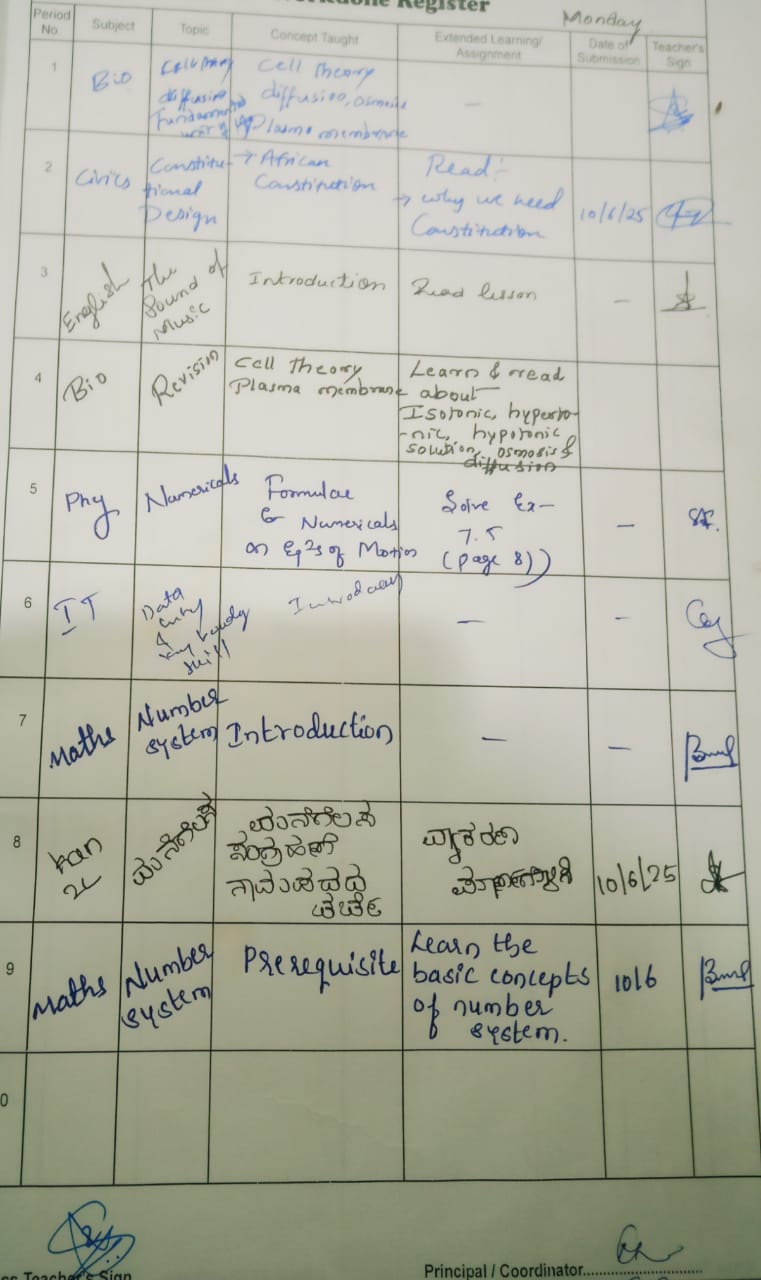 Register
Monday
Period No. Subject Topic Concept Taught Extended Learning/ Assignment Date of Submission Teacher's Sign
1 Bio Cell theory Cell Theory –
diffusion diffusion, osmosis
Fundamental Plasma membrane
2 Civics Constitu- → African Read:-
tional Constitution → why we need 10/6/25
Design Constitution
3 English The Sound of Music Introduction Read lesson –
4 Bio Revision Cell Theory Learn & read
Plasma membrane about
Isotonic, hyperto
-nic, hypotonic
solution, osmosis &
diffusion
5 Phy Numericals Formulae Solve Ex–
& Numericals 7.5 –
on Eqns of Motion (page 8))
6 IT Data entry & skill – –
7 Maths Number system Introduction – –
8 Kan ಮನೆಗೆಲಸ
ವ್ಯಾಕರಣ
10/6/25
9 Maths Number system Prerequisite Learn the
basic concepts 10/6
of number
system.
0
Teacher's Sign
Principal / Coordinator